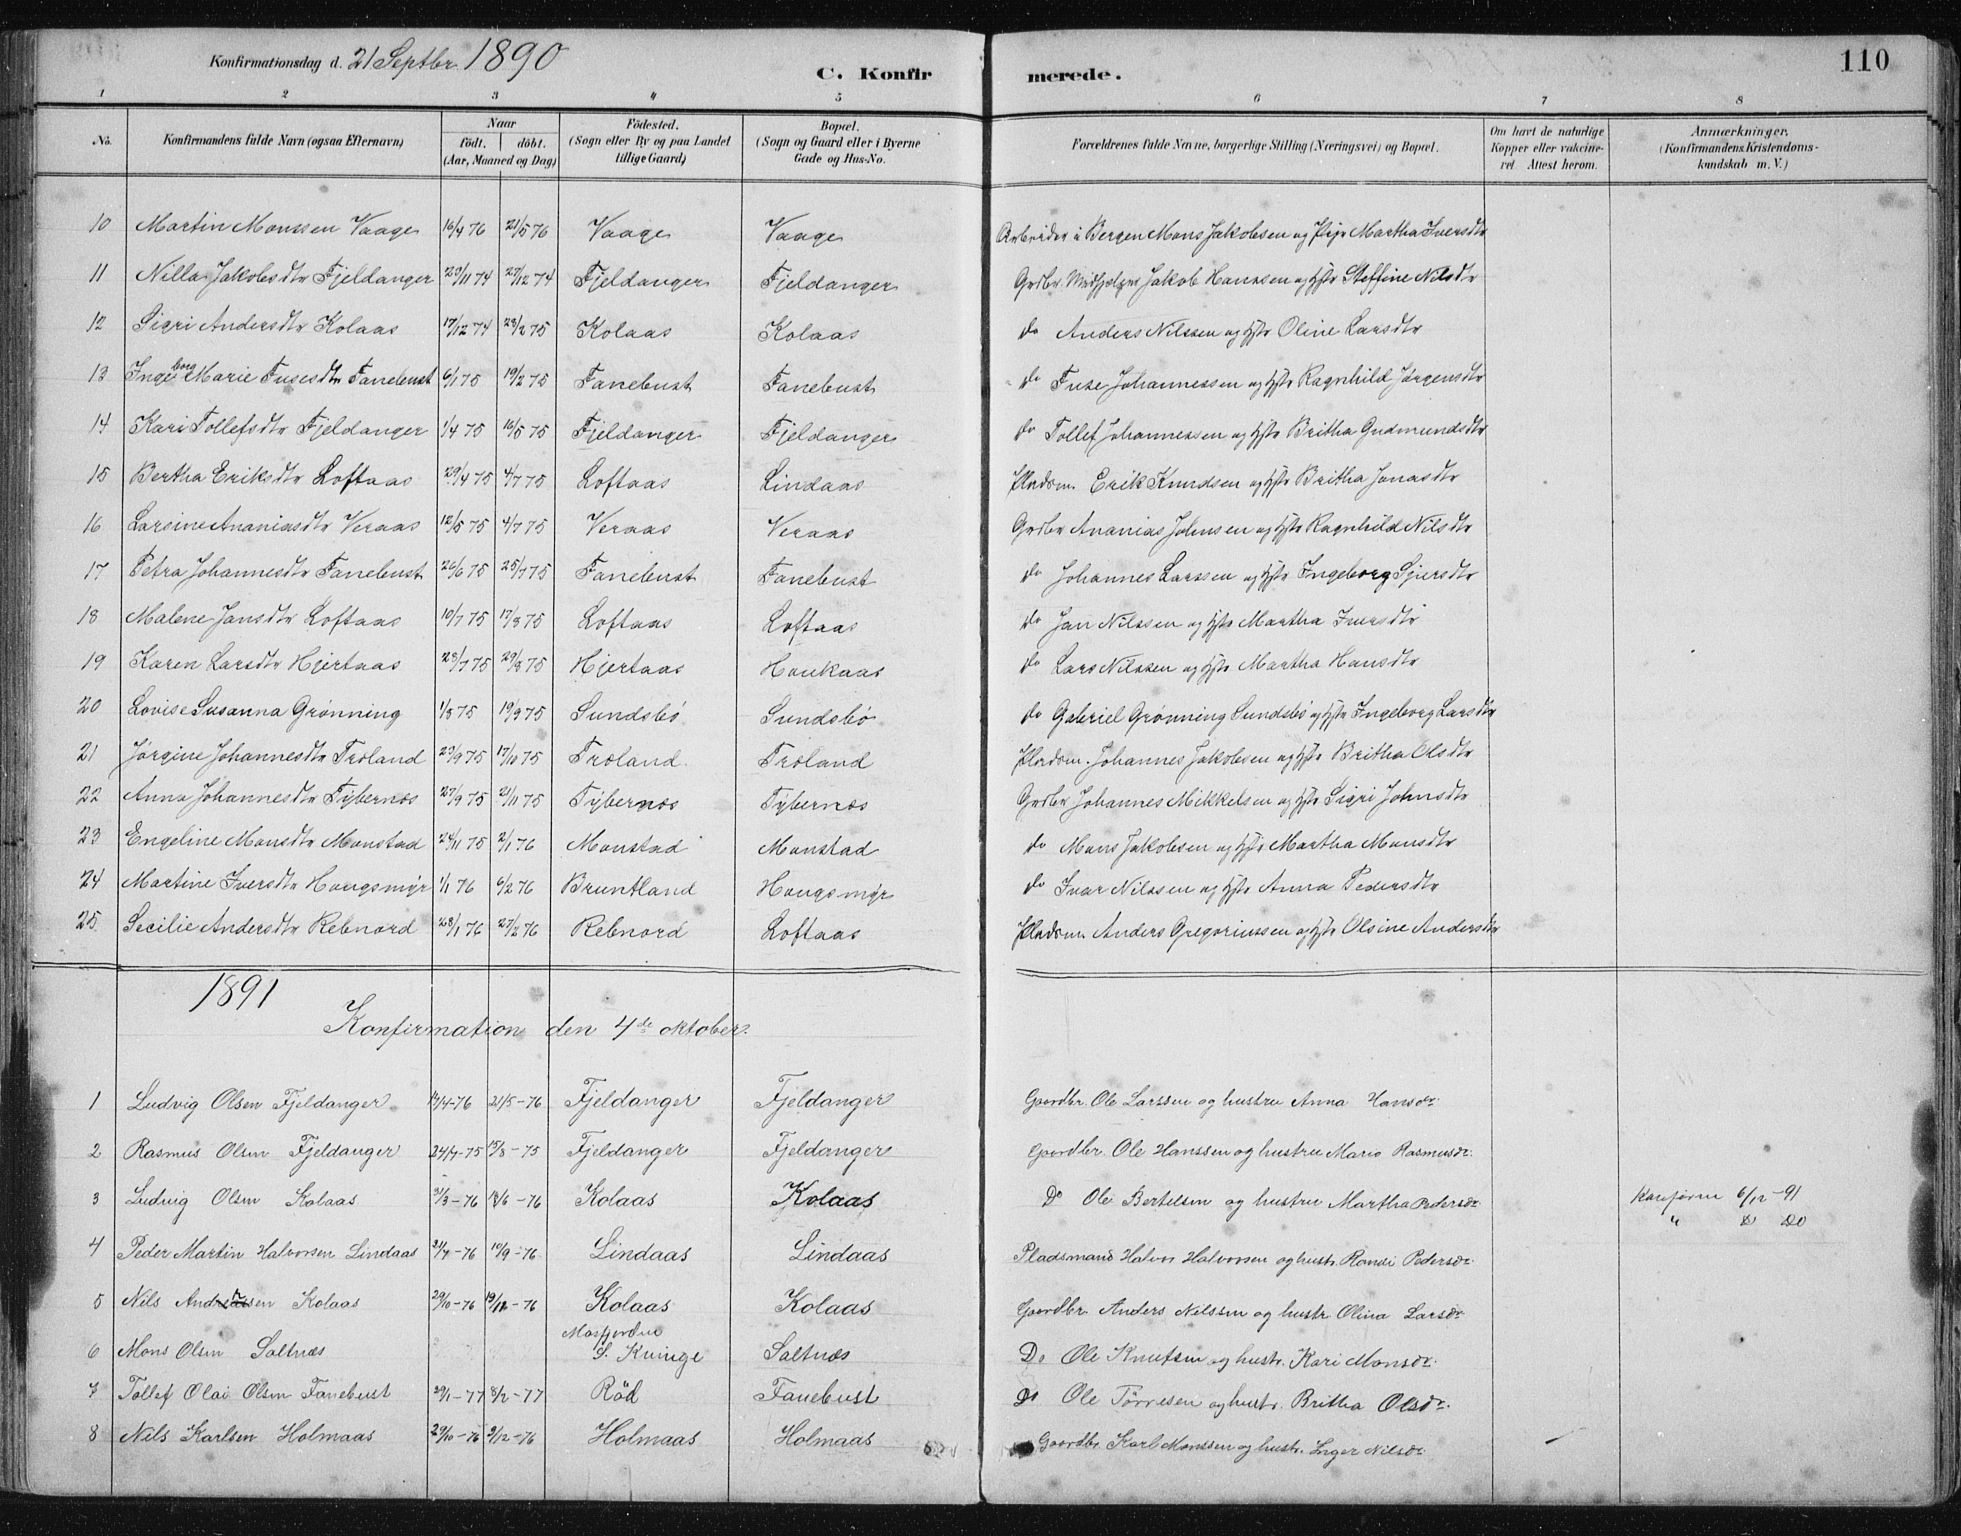 Konfirmationsdag d. 21 Septbr. 1890
C. Konfirmerede.
110
1 2 3 4 5 6 7 8
No. | Konfirmandens fulde Navn (ogsaa Efternavn) | Naar født. døbt. (Aar, Maaned og Dag) | Fødested. (Sogn eller By og paa Landet tillige Gaard) | Bopæl. (Sogn og Gaard eller i Byerne Gade og Hus-No. | Forældrenes fulde Navne, borgerlige Stilling (Næringsvei) og Bopæl. | Om havt de naturlige Kopper eller vakcineret. Attest herom. | Anmærkninger. (Konfirmandens Kristendomskundskab m. V.)
10 Martin Monssen Vaage 16/4 76 21/5 76 Vaage Vaage Arbeider i Bergen Mons Jakobsen og Pige Martha Iversdtr
11 Nilla Jakobsdtr Fjeldanger 29/11 74 27/12 74 Fjeldanger Fjeldanger Grdbr. Jakob Hanssen og Hstr Steffine Nilsdtr
12 Sigri Andersdtr Kolaas 17/12 74 28/2 75 Kolaas Kolaas do Anders Nilssen og Hstr Oline Larsdtr
13 Ingeborg Marie Fusesdtr Fanebust 6/1 75 19/2 75 Fanebust Fanebust do Fuse Johannessen og Hstr Ragnhild Jørgensdtr
14 Kari Tollefsdtr Fjeldanger 1/4 75 16/5 75 Fjeldanger Fjeldanger do Tollef Johannessen og Hstr Britha Gudmundsdtr
15 Bertha Eriksdtr Loftaas 29/4 75 4/7 75 Loftaas Lindaas Pladsm. Erik Knudsen og Hstr Britha Jonasdtr
16 Larsine Ananiasdtr Veraas 12/5 75 4/7 75 Veraas Veraas Grdbr Ananias Johnsen og Hstr Ragnhild Nilsdtr
17 Petra Johannesdtr Fanebust 26/6 75 25/7 75 Fanebust Fanebust do Johannes Larssen og Hstr Ingeborg Sjursdtr
18 Malene Jansdtr Loftaas 10/7 75 17/8 75 Loftaas Loftaas do Jan Nilssen og Hstr Martha Iversdtr
19 Karen Larsdtr Hjertaas 23/7 75 29/8 75 Hjertaas Haukaas do Lars Nilssen og Hstr Martha Hansdtr
20 Lovise Susanna Grønning 1/8 75 19/9 75 Sundsbø Sundsbø do Gabriel Grønning Sundsbø og Hstr Ingeborg Larsdtr
21 Jørgine Johannesdtr Troland 23/9 75 17/10 75 Troland Troland Pladsm. Johannes Jakobsen og Hstr Britha Olsdtr
22 Anna Johannesdtr Tybernes 27/9 75 21/11 75 Tybernes Tybernes Grdbr Johannes Mikkelsen og Hstr Sigri Johnsdtr
23 Engeline Monsdtr Monstad 24/11 75 2/1 76 Monstad Monstad do Mons Jakobsen og Hstr Martha Monsdtr
24 Martine Iversdtr Hougsmyr 1/1 76 6/2 76 Bruntland Hougsmyr do Ivar Nilssen og Hstr Anna Pedersdtr
25. Secilie Andersdtr Rebnord 23/1 76 27/2 76 Rebnord Loftaas Pladsm. Anders Gregoriussen og Hstr Olsine Andersdtr
1891
Konfirmation den 4de oktober.
1 Ludvig Olsen Fjeldanger 14/4-76 21/5-76 Fjeldanger Fjeldanger Goardbr. Ole Larssen og hustru Anna Hansdr.
2 Rasmus Olsen Fjeldanger 24/7-75 15/8-75 Fjeldanger Fjeldanger Goardbr. Ole Hanssen og hustru Marie Rasmusdr.
3 Ludvig Olsen Kolaas 31/3-76 18/6-76 Kolaas Kolaas Do Ole Bertelsen og hustru Martha Pedersdr. 6/12-91
" Do Do
4 Peder Martin Halvorsen Lindaas 31/7-76 10/9-76 Lindaas Lindaas Pladsmand Halvor Halvorsen og hustr. Randi Pedersdr.
5 Nils Andersen Kolaas 29/10-76 19/12-76 Kolaas Kolaas Goardbr. Anders Nilssen og hustr. Olina Larsdr.
6 Mons Olsen Saltnæs Masfjorden S. Kvinge Saltnæs Do Ole Knutsen og hustr. Kari Monsdr.
7 Tollef Olai Olsen Fanebust 29/1-77 8/2-77 Rød Fanebust Do Ole Tørresen og hustr. Britha Olsdr.
8 Nils Karlsen Holmaas 29/10-76 3/12-76 Holmaas Holmaas Goardbr. Karl Monssen og hustr. Inger Nilsdr.